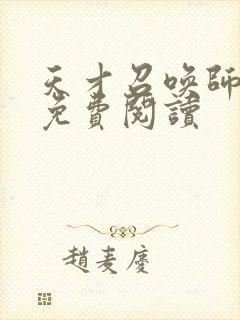 天才召唤師
免費閱讀
趙麦慶